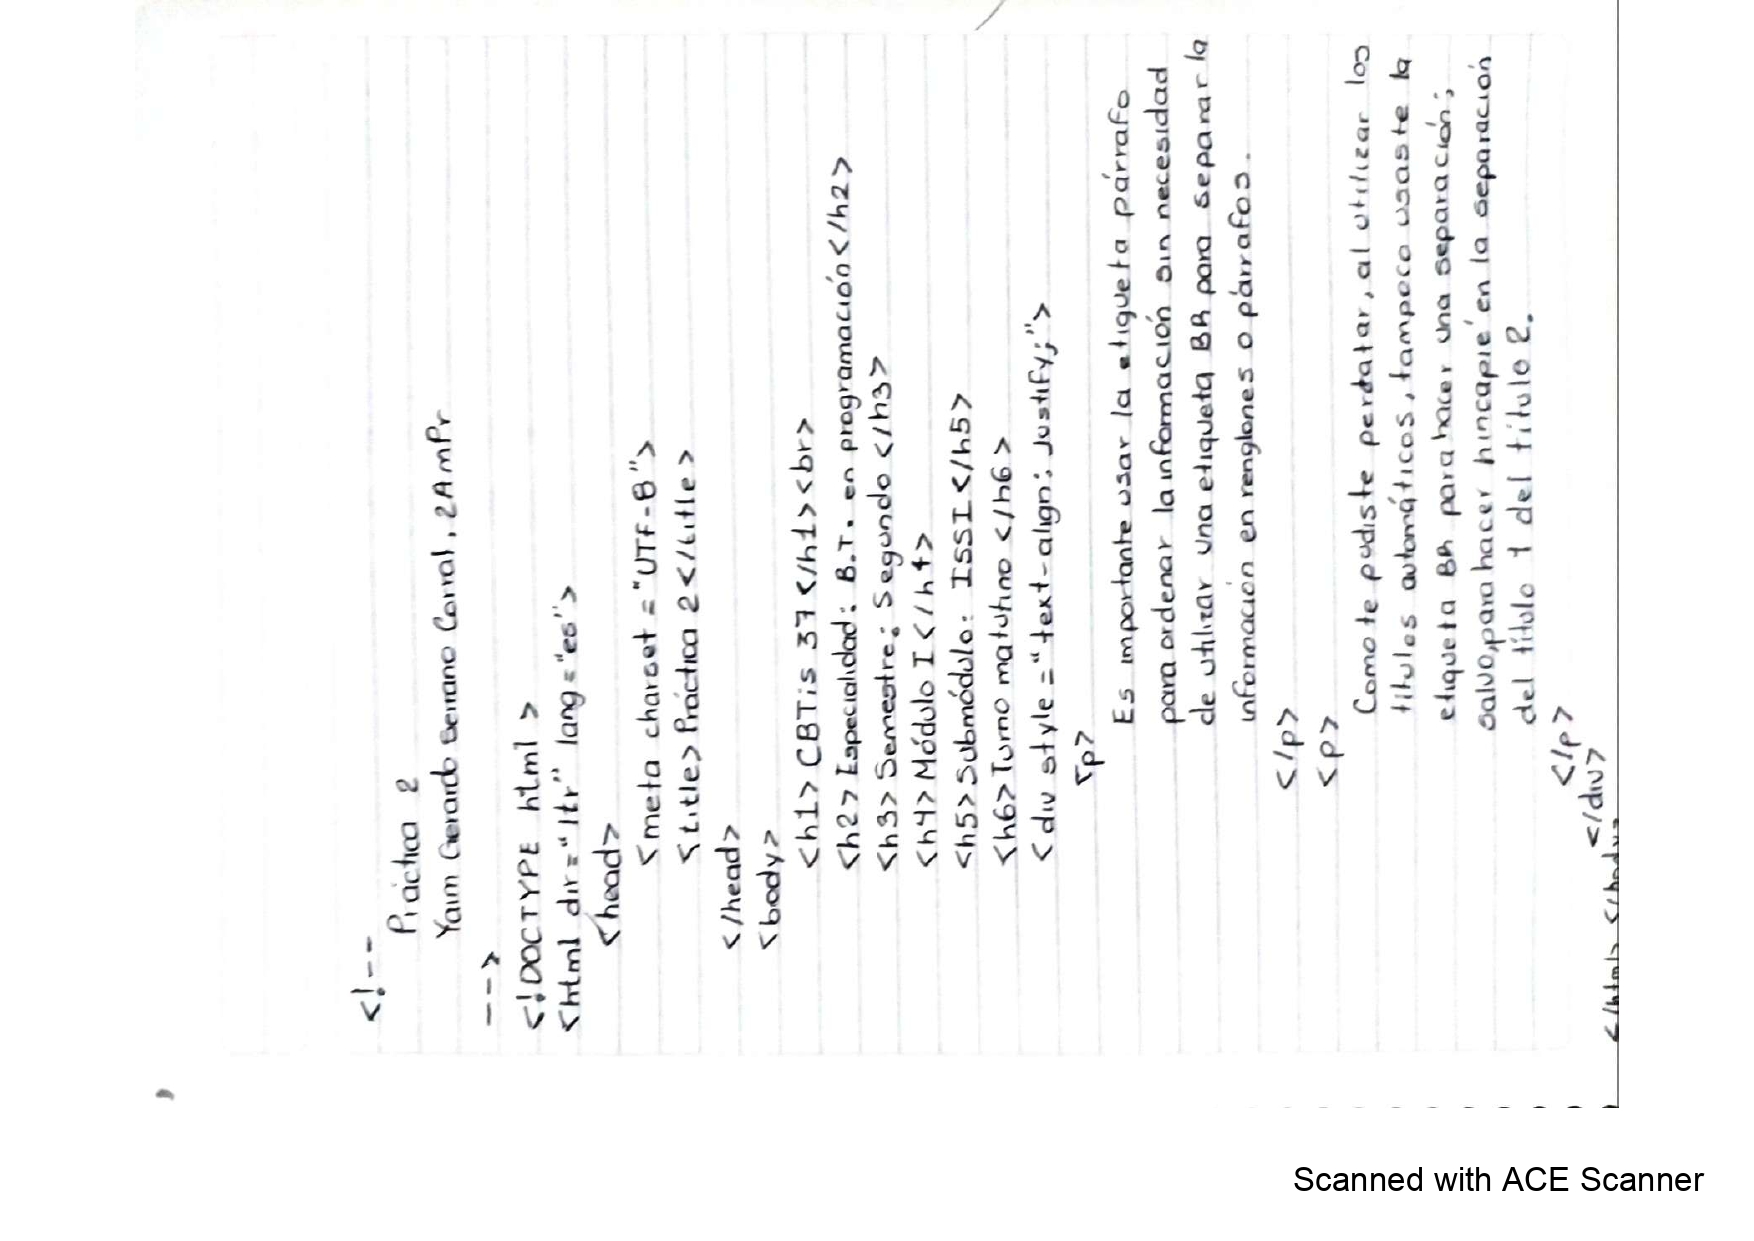 <!--
Práctica 2
Yaim Gerardo Serrano Corral, 2AMPr
-->
<!DOCTYPE html >
<html dir="ltr" lang="es">
<head>
<meta charset="UTF-8">
<title>Práctica 2</title>
</head>
<body>
<h1>CBTis 37</h1><br>
<h2>Especialidad: B.T. en programación</h2>
<h3>Semestre: Segundo</h3>
<h4>Módulo I</h4>
<h5>Submódulo: ISSI</h5>
<h6>Turno matutino</h6>
<div style="text-align: justify;">
<p>
Es importante usar la etiqueta párrafo
para ordenar la información sin necesidad
de utilizar una etiqueta BR para separar la
información en renglones o párrafos.
</p>
<p>
Como te pudiste perdatar, al utilizar los
títulos automáticos, tampoco usaste la
etiqueta BR para hacer una separación;
salvo, para hacer hincapié en la separación
del título 1 del título 2.
</p>
</div>
</html> </body>
Scanned with ACE Scanner